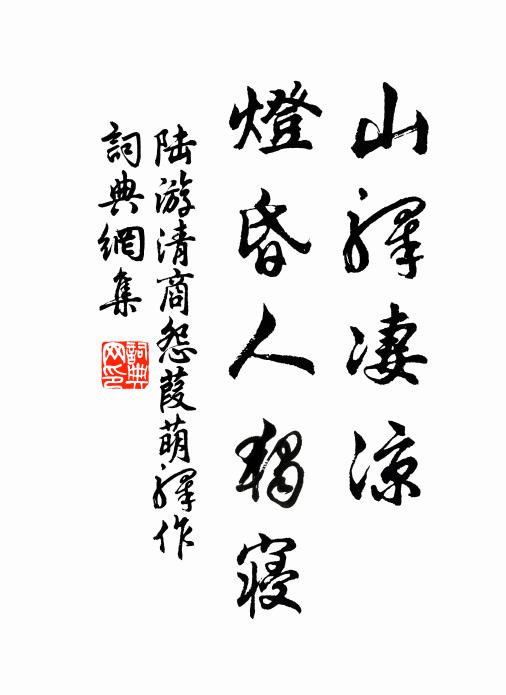 山驛凄涼
燈昏人獨寢
陆游清商怨葭萌驛作
詞典網集
詞典网印